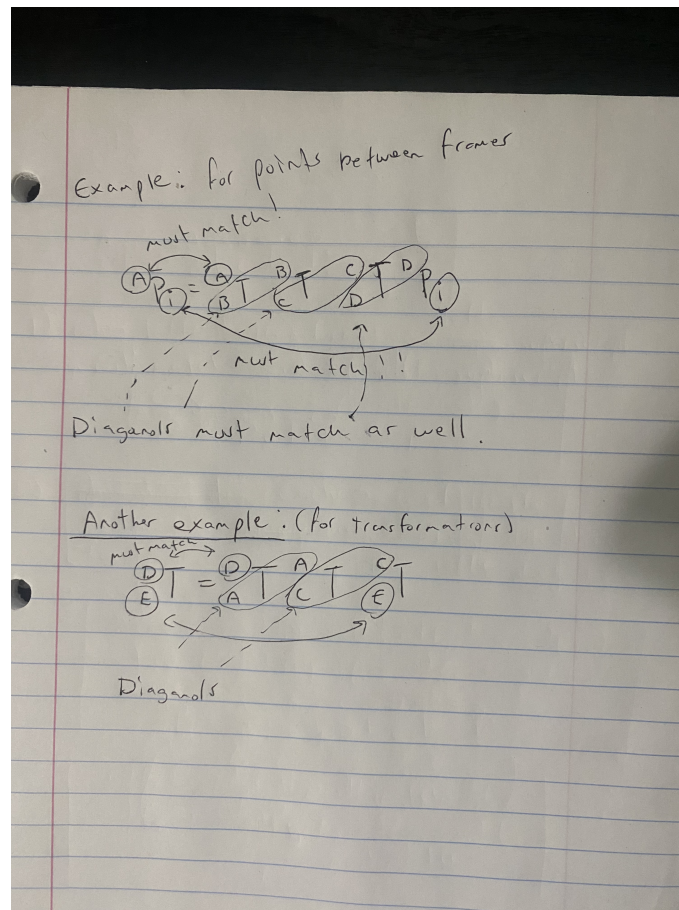 Example: for points between frames
must match!
ᴬPᵢ = ᴬ_BT ᴮ_CT ᶜ_DT ᴰPᵢ
must match!!
Diaganols must match as well.
Another example: (for transformations)
must match
ᴰ_ET = ᴰ_AT ᴬ_CT ᶜ_ET
Diaganols